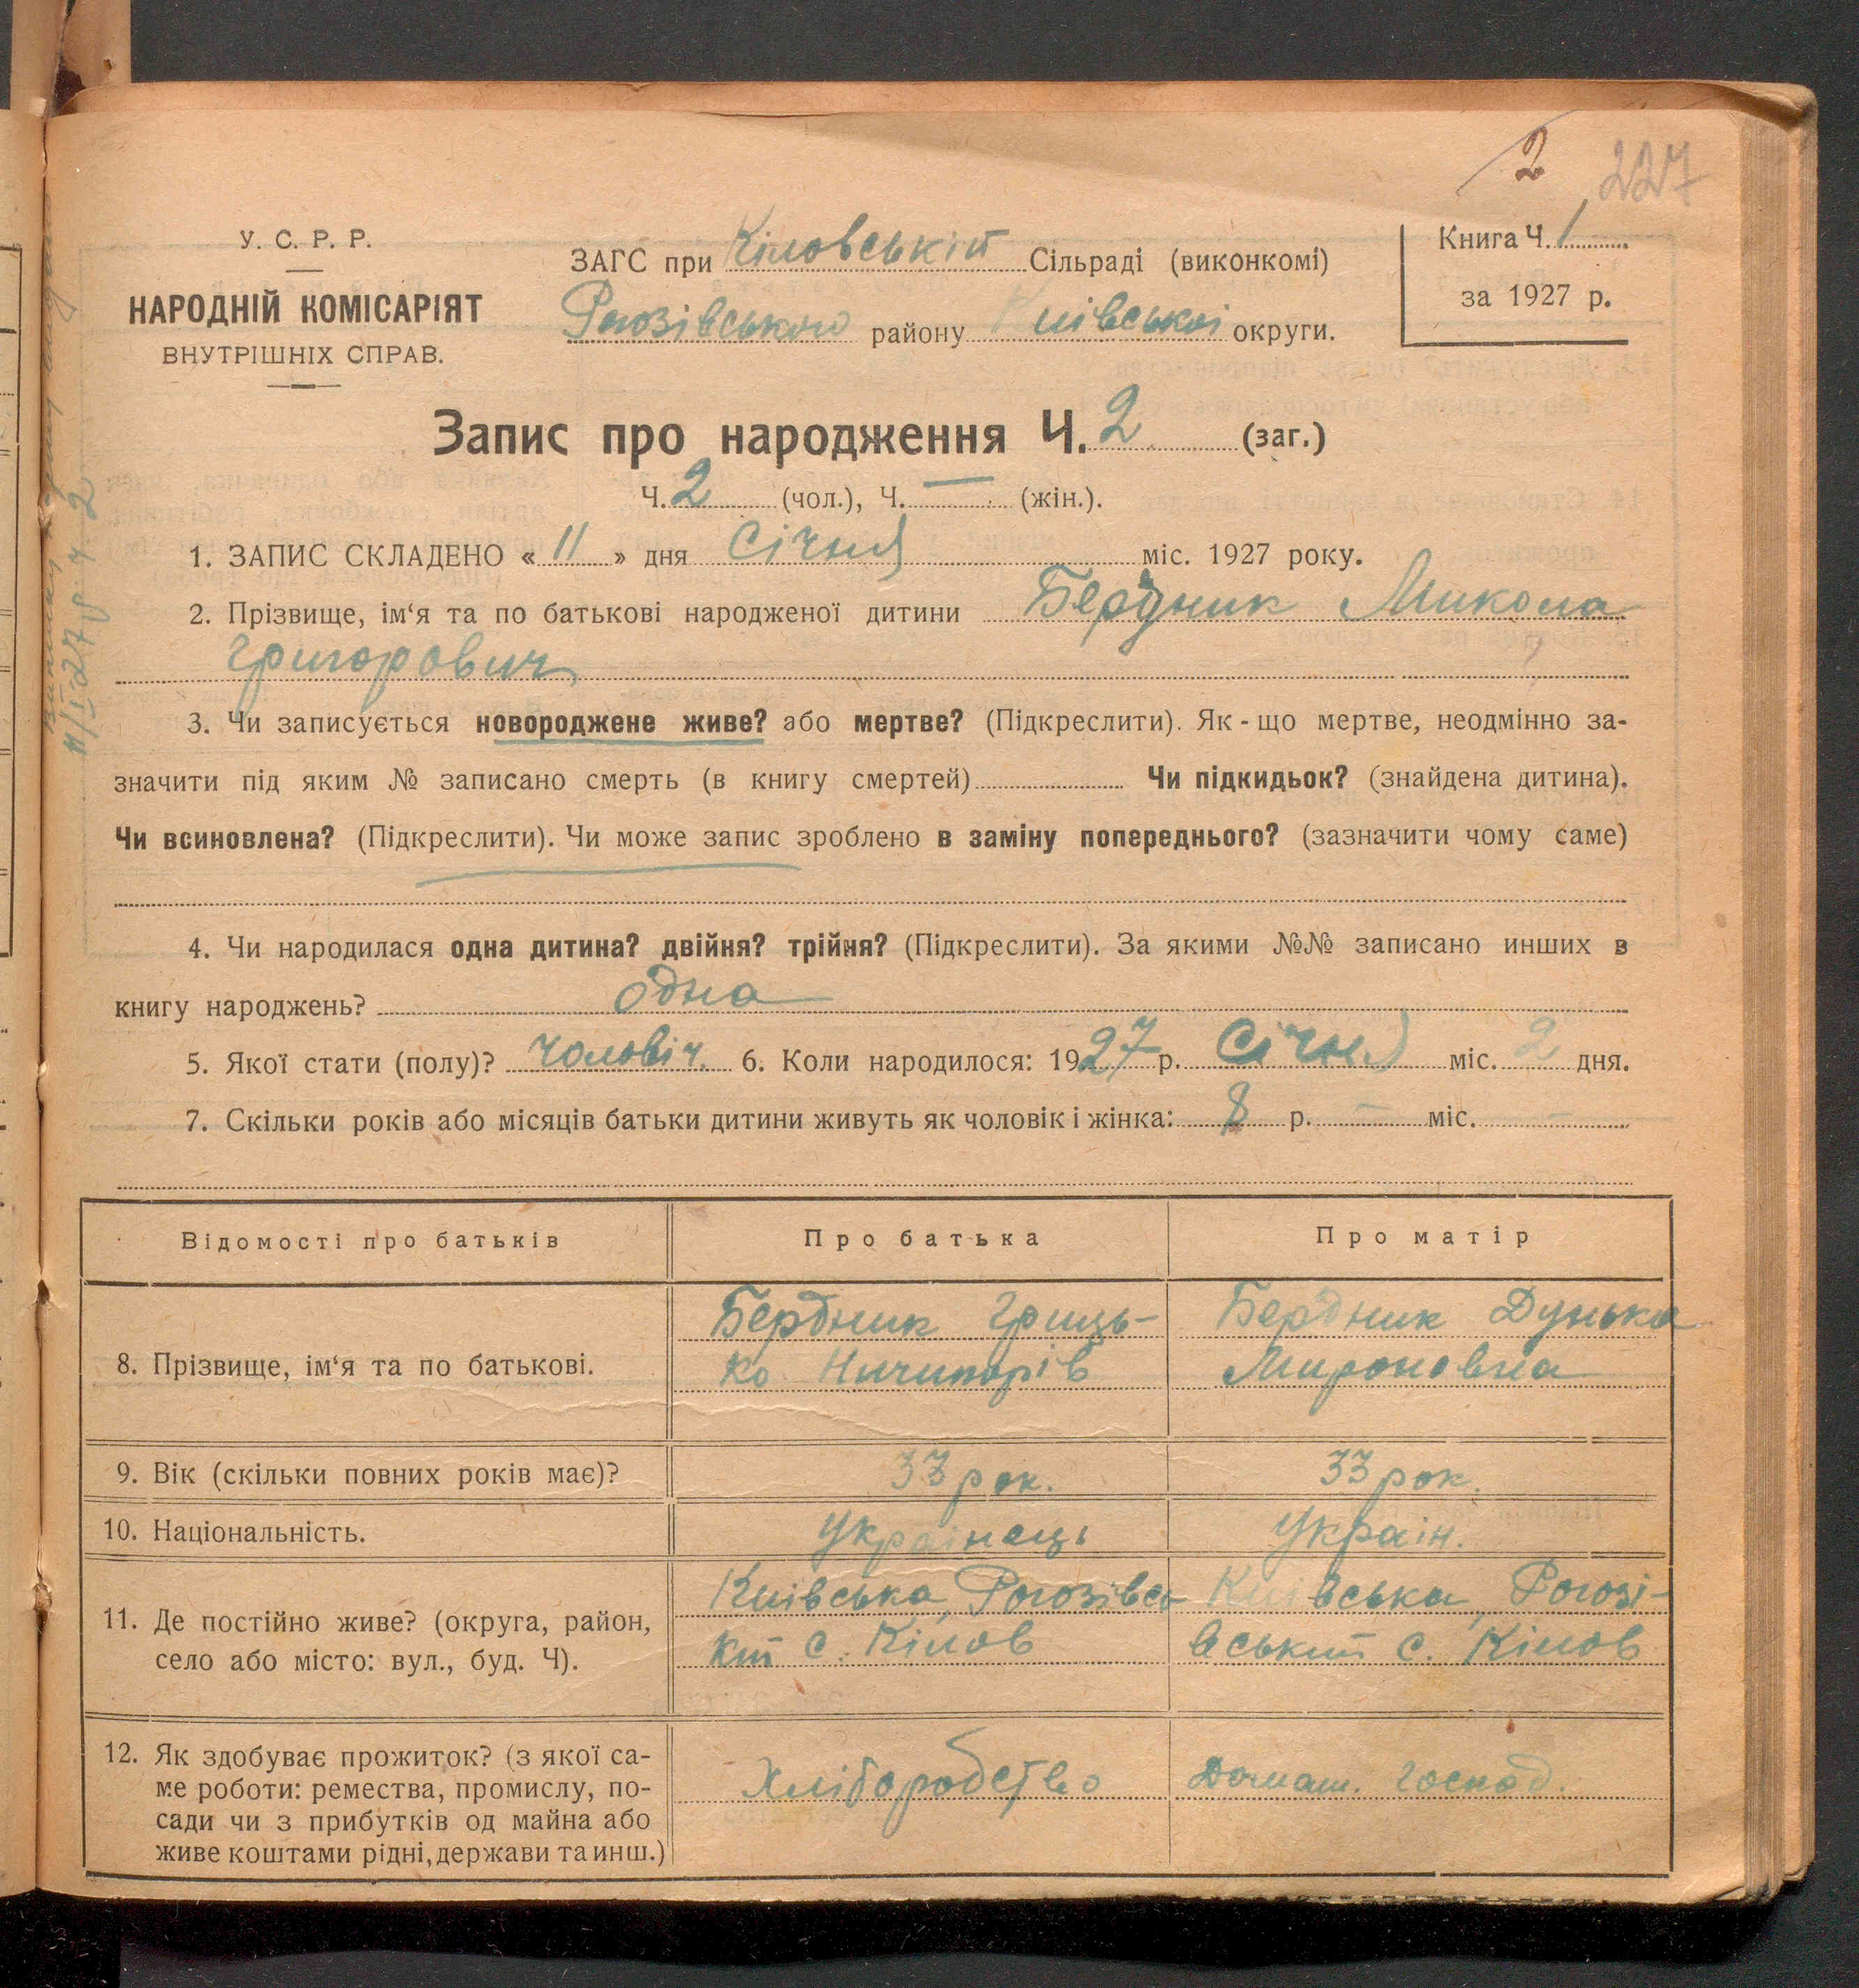 2 227
У. С. Р. Р.
НАРОДНІЙ КОМІСАРІЯТ
ВНУТРІШНІХ СПРАВ.
ЗАГС при Кіловській Сільраді (виконкомі)
Рогозівського району Київської округи.
Книга Ч. 1
за 1927 р.
Запис про народження Ч. 2 (заг.)
Ч. 2 (чол.), Ч. — (жін.).
1. ЗАПИС СКЛАДЕНО « 11 » дня Січня міс. 1927 року.
2. Прізвище, ім‘я та по батькові народженої дитини Бердник Микола
Григорович
3. Чи записується новороджене живе? або мертве? (Підкреслити). Як-що мертве, неодмінно за-
значити під яким № записано смерть (в книгу смертей) Чи підкидьок? (знайдена дитина).
Чи всиновлена? (Підкреслити). Чи може запис зроблено в заміну попереднього? (зазначити чому саме)
4. Чи народилася одна дитина? двійня? трійня? (Підкреслити). За якими №№ записано инших в
книгу народжень? одна
5. Якої стати (полу)? чоловіч. 6. Коли народилося: 1927 р. Січня міс. 2 дня.
7. Скільки років або місяців батьки дитини живуть як чоловік і жінка: 8 р. — міс. —
Відомості про батьків Про батька Про матір
8. Прізвище, ім‘я та по батькові.
Бердник Гриць-
ко Ничипорів
Бердник Дунька
Мироновна
9. Вік (скільки повних років має)? 33 рок. 33 рок.
10. Національність. Українець Україн.
11. Де постійно живе? (округа, район,
село або місто: вул., буд. Ч).
Київська, Рогозівсь
кий с. Кілов
Київська, Рогозі-
вський с. Кілов
12. Як здобуває прожиток? (з якої са-
ме роботи: ремества, промислу, по-
сади чи з прибутків од майна або
живе коштами рідні, держави та инш.)
Хліборобство
Домаш. господ.